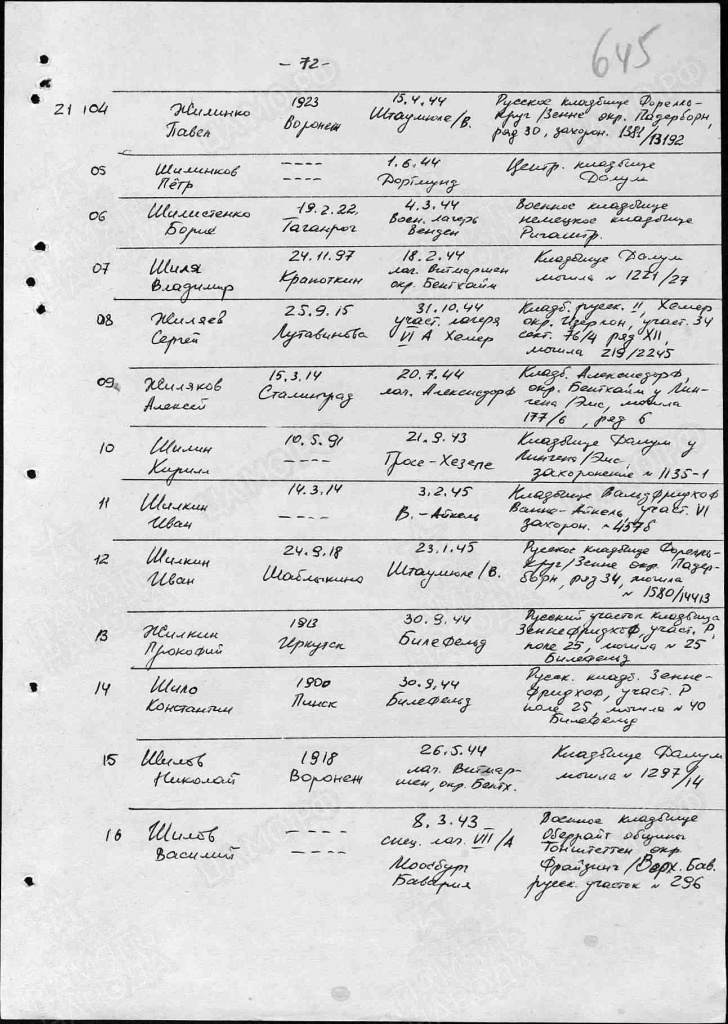 - 72 -
645
21 104 Жилинко 1923 15.4.44 Русское кладбище Форелль-
Павел Воронеж Штаумюле/В. Круг/Зенне окр. Падерборн,
ряд 30, захорон. 1381/13192
05 Шилинков ---- 1.6.44 Центр. кладбище
Пётр ---- Дортмунд Далум
06 Шилистенко 19.2.22. 4.3.44 Военное кладбище
Борис Таганрог Воен. лагерь немецкое кладбище
Венден
07 Шиля 24.11.97 18.2.44 Кладбище Далум
Владимир Крапоткин лаг. Витмаршен могила № 1221/27
окр. Бентхайм
08 Жиляев 25.9.15 31.10.44 Кладб. русск. II, Хемер
Сергей Лутавинова участ. лагеря окр. Изерлон, участ. 34
VI А Хемер сект. 76/4 ряд XII,
могила 219/2245
09 Жиляков 15.3.14 20.7.44 Кладб. Алексисдорф,
Алексей Сталинград лаг. Алексисдорф окр. Бентхайм у Лин-
гена/Эмс, могила
177/6, ряд 6
10 Шилин 10.5.91 21.9.43 Кладбище Далум у
Кирилл ---- Гросс-Хезепе Лингена/Эмс
захоронение № 1135-1
11 Шилкин 14.3.14 3.2.45 Кладбище Вальдфридхоф
Иван ---- В.-Айкель Ванне-Айкель, участ. VI
захорон. № 457б
12 Шилкин 24.9.18 23.1.45 Русское кладбище Форелль-
Иван Шаблыкино Штаумюле/В. Круг/Зенне окр. Падер-
борн, ряд 34, могила
№ 1580/14413
13 Жилкин 1913 30.9.44 Русский участок кладбища
Прокофий Иркутск Билефельд Зеннефридхоф, участ. Р,
поле 25, могила № 25
Билефельд
14 Шило 1900 30.9.44 Русск. кладб. Зенне-
Константин Пинск Билефельд фридхоф, участ. Р
поле 25, могила № 40
Билефельд
15 Шилов 1918 26.5.44 Кладбище Далум
Николай Воронеж лаг. Витмар- могила № 1297/14
шен, окр. Бентх.
16 Шилов ---- 8.3.43 Военное кладбище
Василий ---- спец. лаг. VII/А Оберрайт общины
Моосбург Тонштеттен окр.
Бавария Фрайзинг/Верх. Бав.
русск. участок № 296